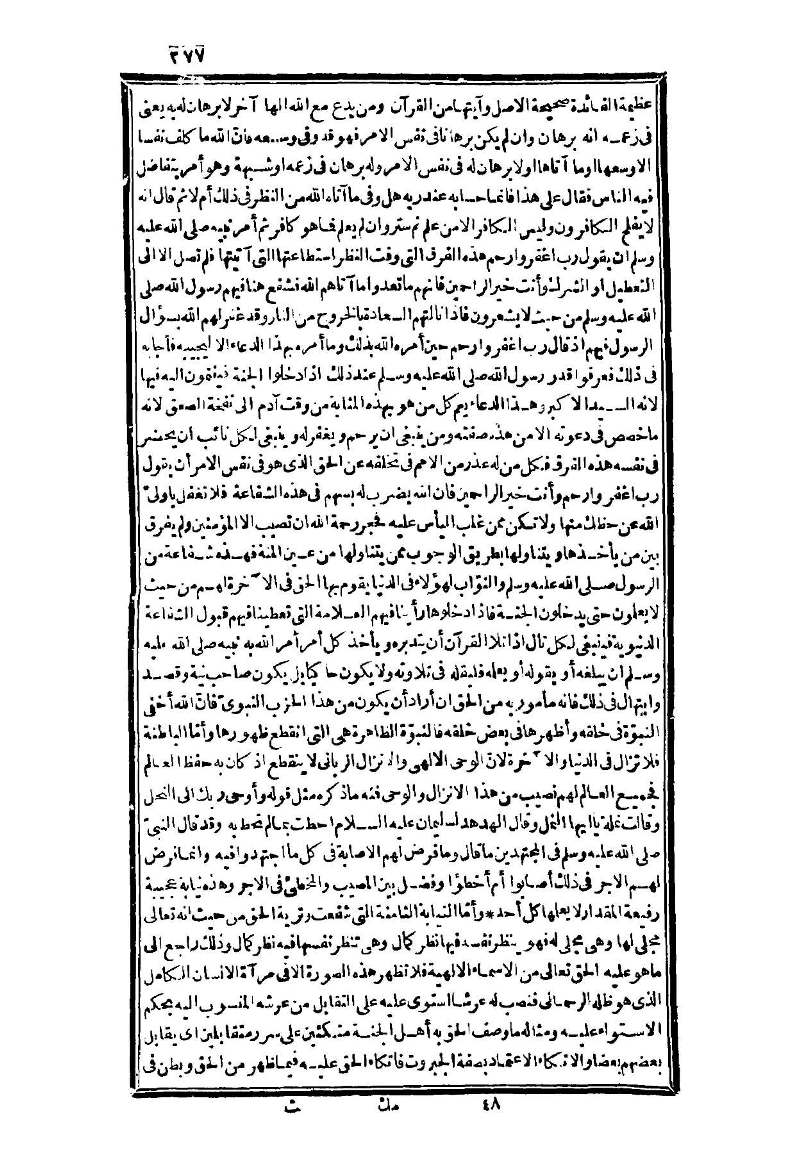 ٣٧٧
عظيمة الفائدة صحيحة الاصل وآيتها من القرآن ومن يدع مع الله الها آخر لا برهان له به يعنى
فى زعمه انه برهان وان لم يكن برهانا فى نفس الامر فهو قد وفى وسعه فان الله ما كلف نفسا
الا وسعها او ما آتاها ولا برهان له فى نفس الامر وله برهان فى زعمه او شبهة وهو أمر يتفاضل
فيه الناس فقال على هذا فانما حسابه عند ربه هل وفى ما آتاه الله من النظر فى ذلك أم لا ثم قال انه
لا يفلح الكافرون وليس الكافر الا من علم ثم ستر وان لم يعلم فما هو كافر ثم أمر نبيه صلى الله عليه
وسلم ان يقول رب اغفر وارحم هذه الفرق التى وفت النظر استطاعتها التى آتيتها فلم تصل الا الى
التعطيل او الشرك وأنت خير الراحمين فانهم ما تعدوا ما آتاهم الله فشفع هنا فيهم رسول الله صلى
الله عليه وسلم من حيث لا يشعرون فاذا نالتهم السعادة بالخروج من النار وقد غفر لهم الله بسؤال
الرسول فيهم اذ قال رب اغفر وارحم حين أمره الله بذلك وما أمره بهذا الدعاء الا ليجيبه فأجابه
فى ذلك فعرفوا قدر رسول الله صلى الله عليه وسلم عند ذلك اذا دخلوا الجنة فينتمون اليه فيها
لانه السيد الاكبر وهذا الدعاء يعم كل من هو بهذه المثابة من وقت آدم الى نفخة الصعق لانه
ما خصص فى دعوته الا من هذه صفته ومن ينبغى ان يرحم ويغفر له وينبغى لكل نائب ان يحضر
فى نفسه هذه الفرق فكل من له عذر من الامم فى تخلفه عن الحق الذى هو فى نفس الامر أن يقول
رب اغفر وارحم وأنت خير الراحمين فان الله يضرب له بسهم فى هذه الشفاعة فلا تغفل ياولىّ
الله عن حظك منها ولا تكن ممن غلب اليأس عليه فحجر رحمة الله ان تصيب الا المؤمنين ولم يفرق
بين من يأخذها ويتناولها بطريق الوجوب ممن يتناولها من عين المنة فهذه شفاعة من
الرسول صلى الله عليه وسلم والنواب لهؤلاء فى الدنيا يقوم بها الحق فى الآخرة لهم من حيث
لا يعلمون حتى يدخلون الجنة فاذا دخلوها رأينا فيهم العلامة التى تعطينا فيهم قبول الشفاعة
الدنيوية فينبغى لكل تال اذا تلا القرآن أن يتدبره ويأخذ كل أمر أمر الله به نبيه صلى الله عليه
وسلم ان يبلغه أو يقوله أو يعلمه فليقله فى تلاوته ولا يكون حاكيا بل يكون صاحب نية وقصد
وابتهال فى ذلك فانه مأمور به من الحق ان أراد أن يكون من هذا الحزب النبوىّ فانّ الله أخفى
النبوّة فى خلقه وأظهرها فى بعض خلقه فالنبوّة الظاهرة هى التى انقطع ظهورها وأمّا الباطنة
فلا تزال فى الدنيا والآخرة لانّ الوحى الالهى والانزال الربانى لا ينقطع اذ كان به حفظ العالم
فجميع العالم لهم نصيب من هذا الانزال والوحى فنه ما ذكره مثل قوله وأوحى ربك الى النحل
وقالت نملة يا ايها النمل وقال الهدهد لسليمان عليه السلام احطت بما لم تحط به وقد قال النبىّ
صلى الله عليه وسلم فى المجتهدين ما قال وما فرض لهم الاصابة فى كل ما اجتهدوا فيه وانما فرض
لهم الاجر فى ذلك أصابوا أم أخطؤا وفضل بين المصيب والمخطئ فى الاجر وهذه نيابة عجيبة
رفيعة المقدار لا يعلمها كل أحد * وأمّا النيابة الثامنة التى شفعت وترية الحق من حيث انه تعالى
مجلى لها وهى مجلى له فهو ينظر نفسه فيها نظر كمال وهى تنظر نفسها فيه نظر كمال وذلك راجع الى
ما هو عليه الحق تعالى من الاسماء الالهية فلا تظهر هذه الصورة الا فى مرآة الانسان الكامل
الذى هو ظله الرحمانى فنصب له عرشا استوى عليه على التقابل من عرشه المنسوب اليه بحكم
الاستواء عليه ومثاله ما وصف الحق به أهل الجنة متكئين على سرر متقابلين اى يقابل
بعضهم بعضا والاتكاء الاعتماد بصفة الجبروت فاتكاء الحق عليه فيما ظهر من الحق وبطن فى
٤٨ مك ث